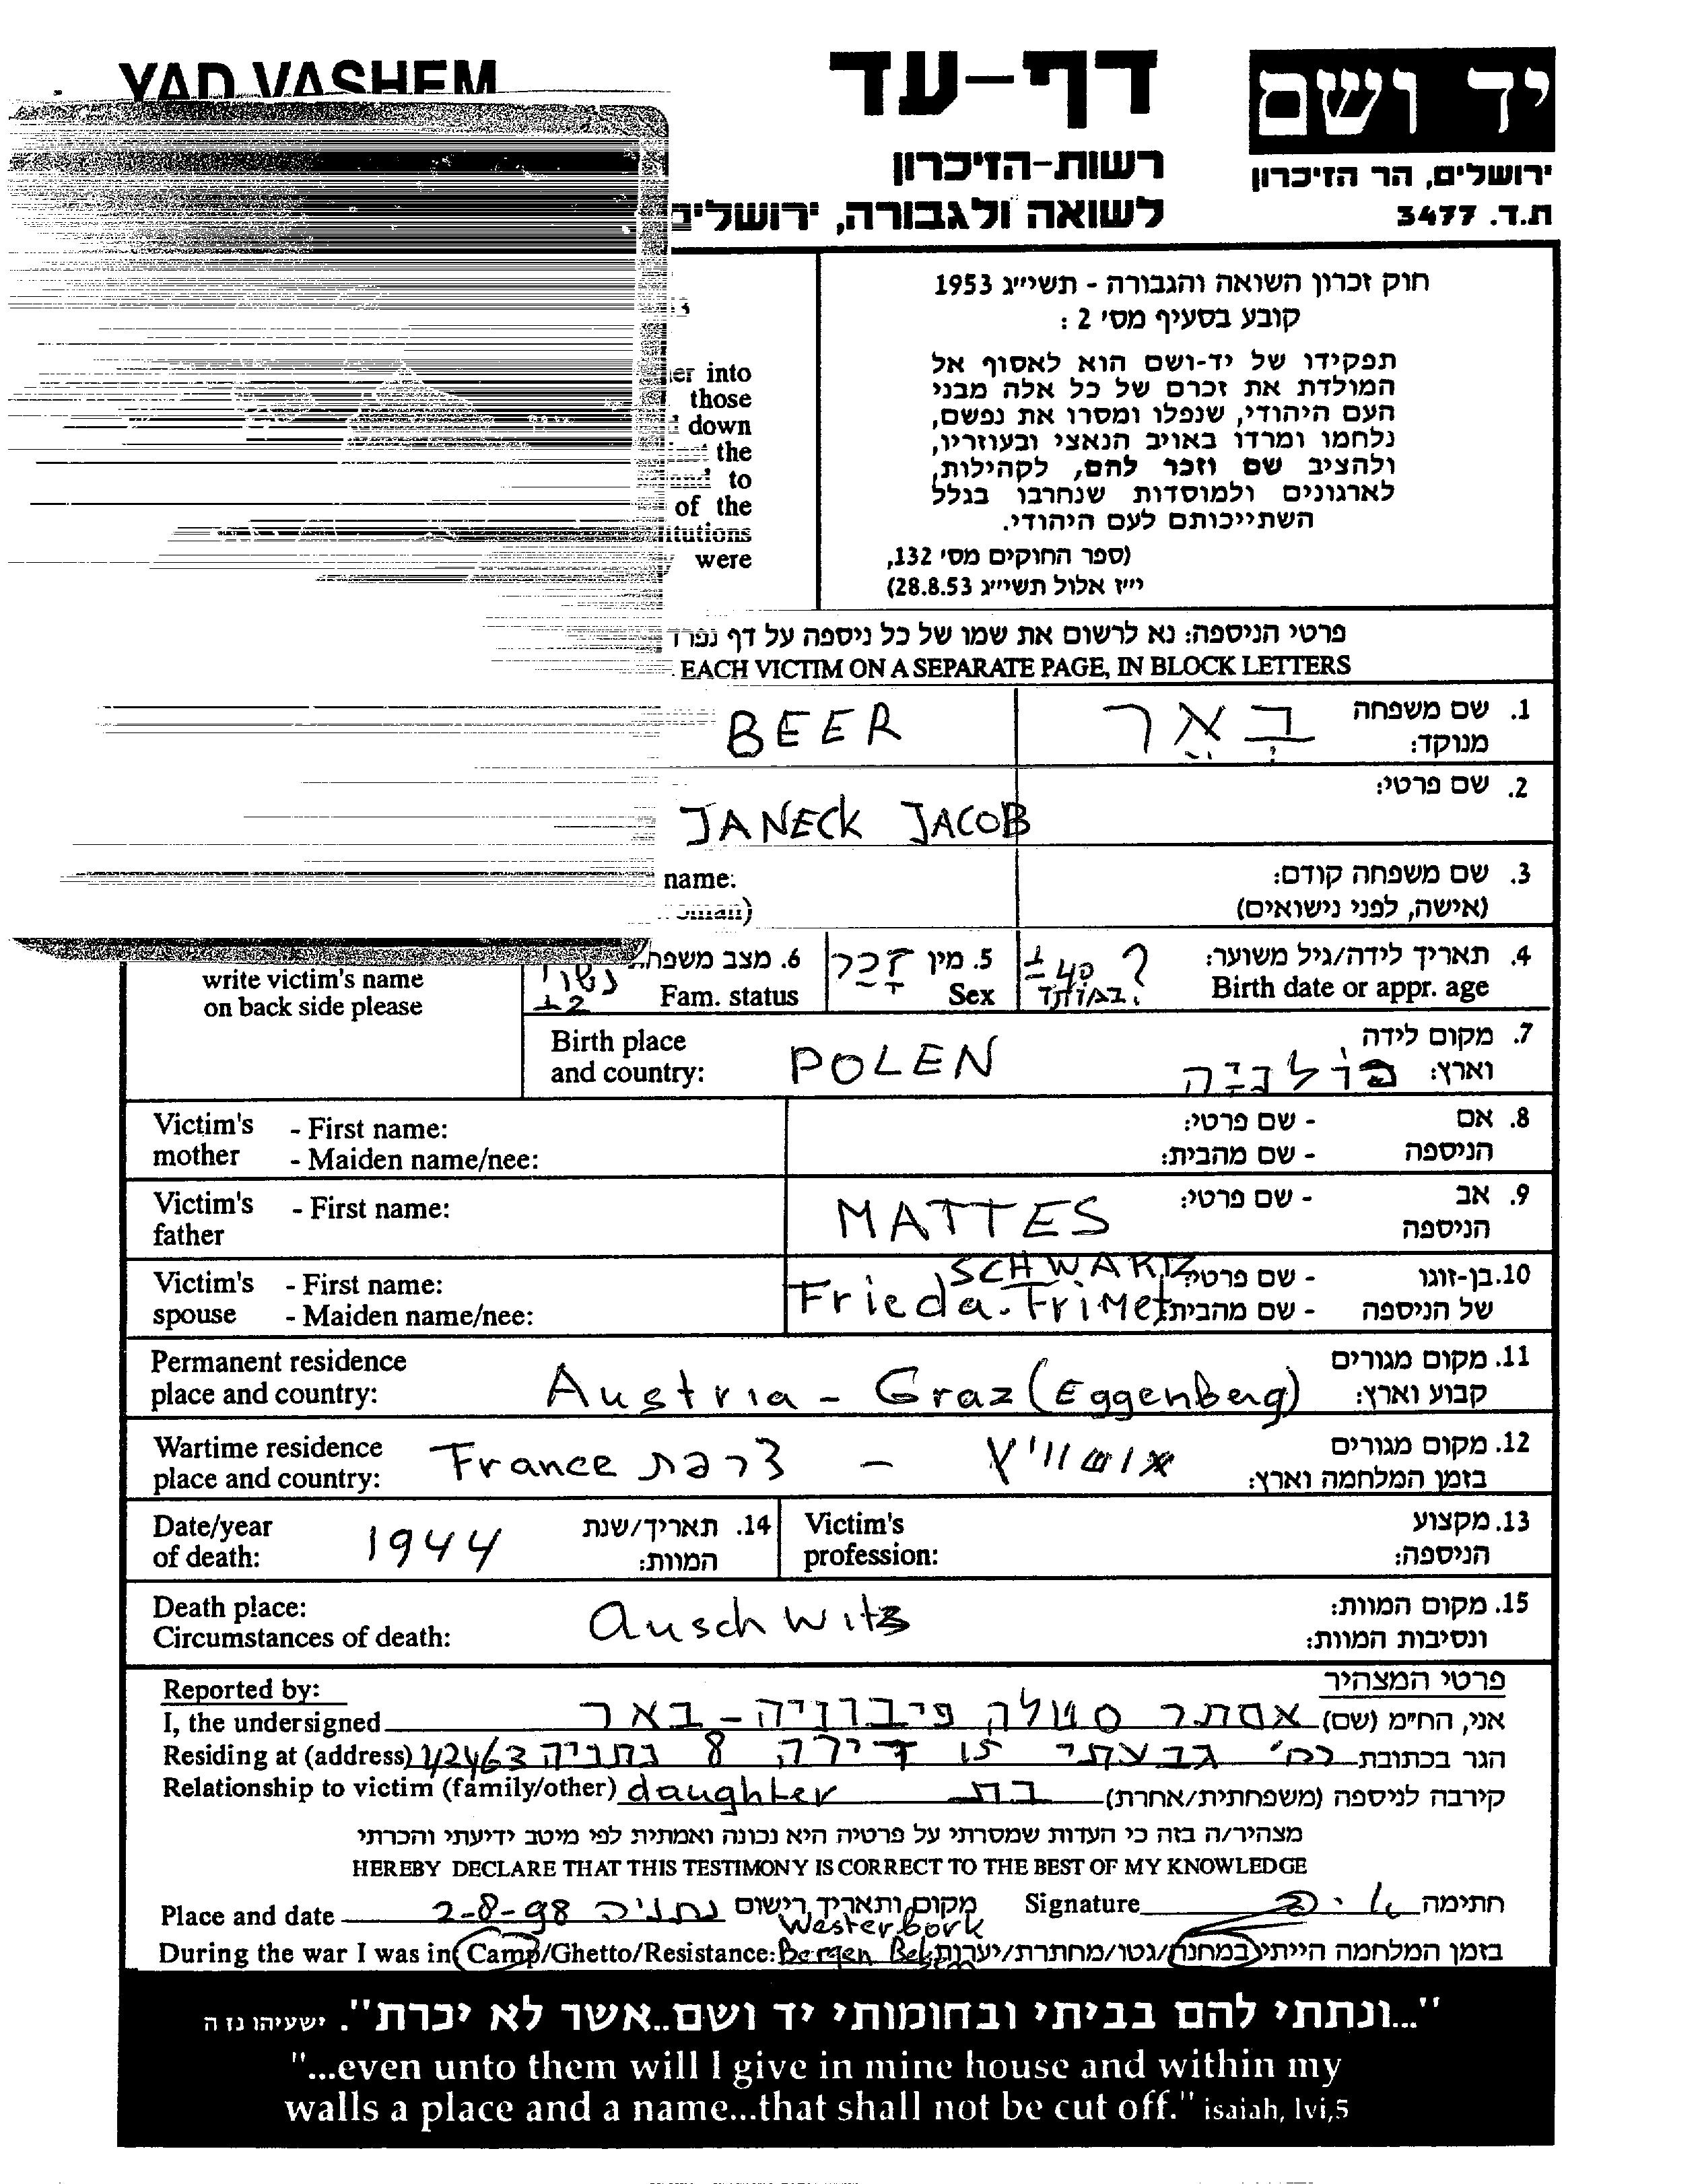 YAD VASHEM
דף-עד
יד ושם
רשות-הזיכרון
לשואה ולגבורה, ירושלים
ירושלים, הר הזיכרון
ת.ד. 3477
חוק זכרון השואה והגבורה - תשי״ג 1953
קובע בסעיף מס׳ 2 :
תפקידו של יד-ושם הוא לאסוף אל
המולדת את זכרם של כל אלה מבני
העם היהודי, שנפלו ומסרו את נפשם,
נלחמו ומרדו באויב הנאצי ובעוזריו,
ולהציב שם וזכר להם, לקהילות,
לארגונים ולמוסדות שנחרבו בגלל
השתייכותם לעם היהודי.
(ספר החוקים מס׳ 132,
י״ז אלול תשי״ג 28.8.53)
into
those
down
the
to
of the
were
פרטי הניספה: נא לרשום את שמו של כל ניספה על דף נפרד
EACH VICTIM ON A SEPARATE PAGE, IN BLOCK LETTERS
1. שם משפחה
מנוקד:
באר
BEER
2. שם פרטי:
JANECK JACOB
3. שם משפחה קודם:
(אישה, לפני נישואים)
name:
4. תאריך לידה/גיל משוער:
Birth date or appr. age
± 40 ?
5. מין זכר
Sex
6. מצב משפחתי
Fam. status
נשוי
+2
write victim's name
on back side please
7. מקום לידה
וארץ:
פולניה
Birth place
and country:
POLEN
8. אם - שם פרטי:
הניספה - שם מהבית:
Victim's - First name:
mother - Maiden name/nee:
9. אב - שם פרטי:
הניספה
MATTES
Victim's - First name:
father
10. בן-זוגו - שם פרטי:
של הניספה - שם מהבית:
SCHWARTZ
Frieda. Frimet
Victim's - First name:
spouse - Maiden name/nee:
11. מקום מגורים
קבוע וארץ:
Austria - Graz (Eggenberg)
Permanent residence
place and country:
12. מקום מגורים
בזמן המלחמה וארץ:
אושוויץ - צרפת France
Wartime residence
place and country:
13. מקצוע
הניספה:
Victim's
profession:
14. תאריך/שנת
המוות:
1944
Date/year
of death:
15. מקום המוות:
ונסיבות המוות:
Auschwitz
Death place:
Circumstances of death:
פרטי המצהיר
Reported by:
אני, הח״מ (שם) אסתר סטלה פיברוזיה - באר
I, the undersigned
הגר בכתובת רח׳ גבעתי 15 דירה 8 נתניה 42463
Residing at (address)
קירבה לניספה (משפחתית/אחרת) בת
Relationship to victim (family/other) daughter
מצהיר/ה בזה כי העדות שמסרתי על פרטיה היא נכונה ואמתית לפי מיטב ידיעתי והכרתי
HEREBY DECLARE THAT THIS TESTIMONY IS CORRECT TO THE BEST OF MY KNOWLEDGE
Place and date 2-8-98 נתניה מקום ותאריך רישום Signature חתימה
Westerbork
During the war I was in Camp/Ghetto/Resistance: Bergen Belsen בזמן המלחמה הייתי במחנה/גטו/מחתרת/יערות
"...ונתתי להם בביתי ובחומותי יד ושם..אשר לא יכרת". ישעיהו נו ה
"...even unto them will I give in mine house and within my
walls a place and a name...that shall not be cut off." isaiah, lvi,5